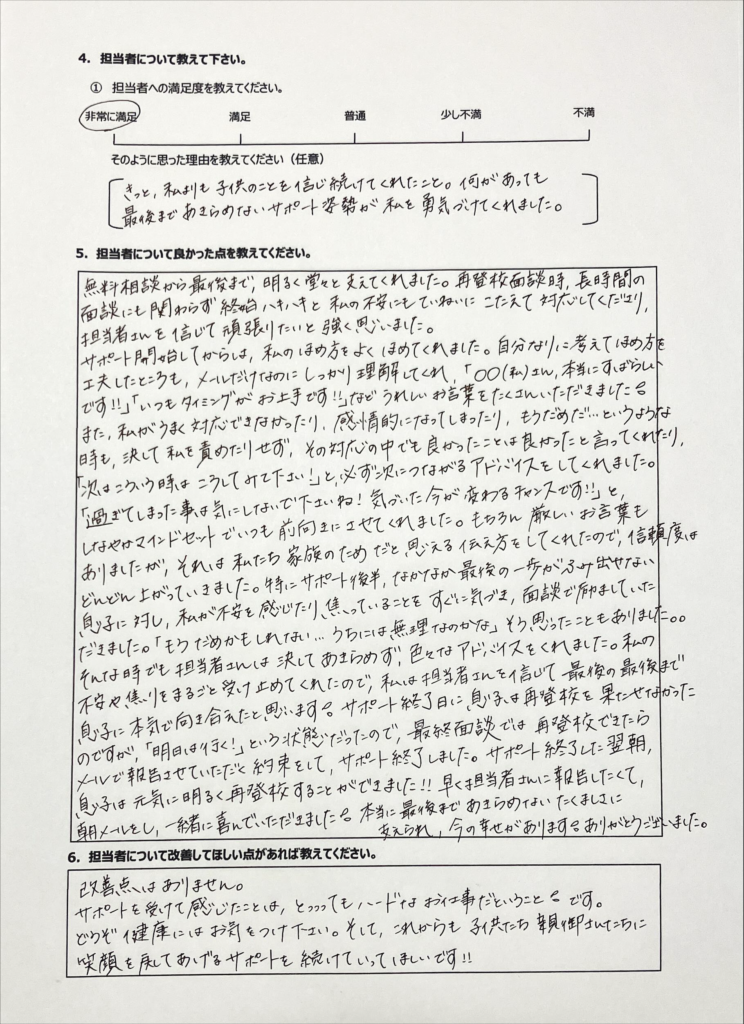 4. 担当者について教えて下さい。
① 担当者への満足度を教えてください。
非常に満足 満足 普通 少し不満 不満
そのように思った理由を教えてください(任意)
きっと、私よりも子供のことを信じ続けてくれたこと。何があっても
最後まであきらめないサポート姿勢が私を勇気づけてくれました。
5. 担当者について良かった点を教えてください。
無料相談から最後まで、明るく堂々と支えてくれました。再登校面談時、長時間の
面談にも関わらず終始ハキハキと私の不安にもていねいにこたえて対応してくださり、
担当者さんを信じて頑張りたいと強く思いました。
サポート開始してからは、私のほめ方をよくほめてくれました。自分なりに考えてほめ方を
工夫したところも、メールだけなのにしっかり理解してくれ、「〇〇(私)さん、本当にすばらしい
です!!」「いつもタイミングがお上手です!!」などうれしいお言葉をたくさんいただきました。
また、私がうまく対応できなかったり、感情的になってしまったり、もうだめだ…というような
時も、決して私を責めたりせず、その対応の中でも良かったことは良かったと言ってくれたり、
「次はこういう時はこうしてみて下さい!」と、必ず次につながるアドバイスをしてくれました。
「過ぎてしまった事は気にしないで下さいね!気づいた今が変わるチャンスです!!」と、
しなやかマインドセットでいつも前向きにさせてくれました。もちろん厳しいお言葉も
ありましたが、それは私たち家族のためだと思える伝え方をしてくれたので、信頼度は
どんどん上がっていきました。特にサポート後半、なかなか最後の一歩がふみ出せない
息子に対し、私が不安を感じたり焦っていることをすぐに気づき、面談で励ましていた
だきました。「もうだめかもしれない…うちには無理なのかな」そう思ったこともありました。。
そんな時でも担当者さんは決してあきらめず、色々なアドバイスをくれました。私の
不安や焦りをまるごと受け止めてくれたので、私は担当者さんを信じて最後の最後まで
息子に本気で向き合えたと思います。サポート終了日に息子は再登校を果たせなかった
のですが、「明日は行く!」という状態だったので、最終面談では再登校できたら
メールで報告させていただく約束をして、サポート終了しました。サポート終了した翌朝、
息子は元気に明るく再登校することができました!!早く担当者さんに報告したくて、
朝メールをし、一緒に喜んでいただきました。本当に最後まであきらめないたくましさに
支えられ、今の幸せがあります。ありがとうございました。
6. 担当者について改善してほしい点があれば教えてください。
改善点はありません。
サポートを受けて感じたことは、とっっってもハードなお仕事だということです。
どうぞ健康にはお気をつけ下さい。そして、これからも子供たち親御さんたちに
笑顔を戻してあげるサポートを続けていってほしいです!!